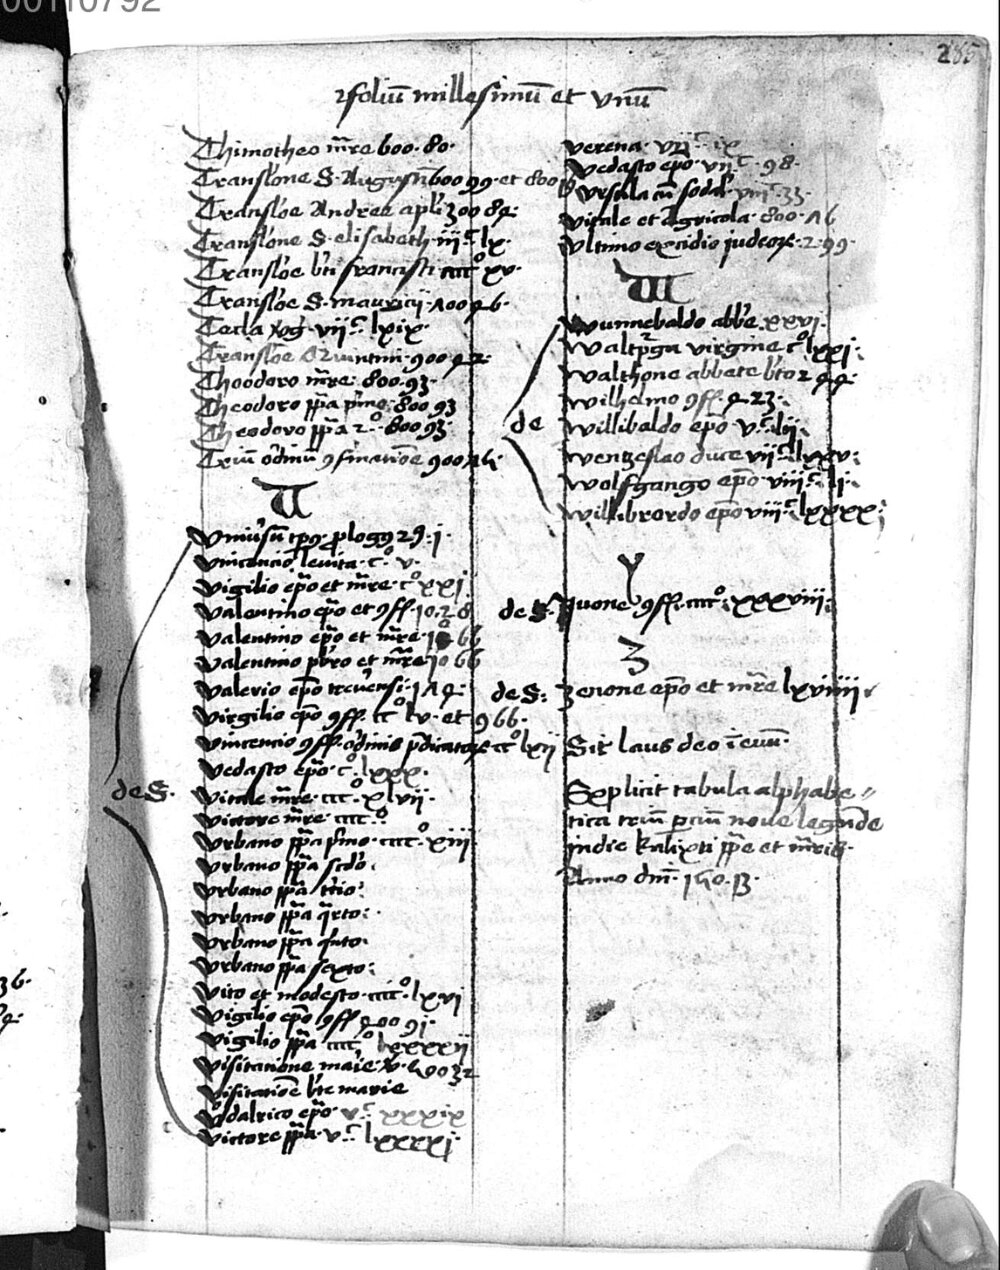 00110792
285
foliū millesimū et vnū
Thimotheo m̄re 600. 80.
Translone S. Augustī 600 99 et 800
Transloe Andree apli 300 84.
Translone S. elisabeth iiiᶜ lx.
Transloe bti francisci ccccº xv.
Transloe S. mauricij 100 46.
Tecla xvg. viiᶜ lxix.
Transloe Quintini 900 42
Theodoro m̄re. 800. 93.
Theodoro ppa pmo. 800 93
Theodoro ppa 2º. 800 93.
Triū odīnū 9firmatiōe 900
U
de S.
vniūsū tpꝫ plogꝫ 29. j.
vincencio levita. cº. v.
vigilio epo et m̄re. cº xxj.
valentino epo et 9ff. 10. 28
valentino epo et m̄re. 10 66
valentino pbro et m̄re 10 66
valerio epo treuensi. 174.
virgilio epo 9ff. ccº lv. et 966.
vincencio 9ff. ordinis pdicatoꝝ ccº lxij
vedasto epo. cº. lxxx.
vitale m̄re. cccº. xlvij.
victore m̄re. ccccº.
vrbano ppa pmo. ccccº. xiij.
vrbano ppa scdo.
vrbano ppa tcio.
vrbano ppa qrto.
vrbano ppa qnto.
vrbano ppa sexto.
vito et modesto. ccccº. lxvj
vigilio epo 9ff 400 91.
vigilio ppa ccccº lxxxxij
visitatione marie 600 32
visitatiōe bte marie
vdalrico epo. vᶜ. xxxix
victore ppa. vᶜ. lxxxxj.
verena. viiᶜ. ix
vedasto epo. viiᶜ. 98.
vrsula cū sodal. viiiᶜ. 33.
vitale et Agricola. 800. 76
vltimo excidio iudeoꝝ. 2. 99.
W
de
wunnebaldo abbe. xxvj.
waltpga virgine cº lxxj.
walthone abbate bto 244.
wilhelmo 9ff. 423.
willibaldo epo vᶜ. lij.
wenzeslao duce viiᶜ. lxxv.
wolfgango epo. viiiᶜ. lj.
willibrordo epo viiiᶜ. lxxxx.
Y
de S. yuone 9ff. ccccº. xxxviii.
Z
de S. zenone epo et m̄re lxviiij.
Sit laus deo i euū.
Explicit tabula alphabe-
tica triū pciū noue legende
indie kalixti ppe et m̄ris.
Anno dm̄.